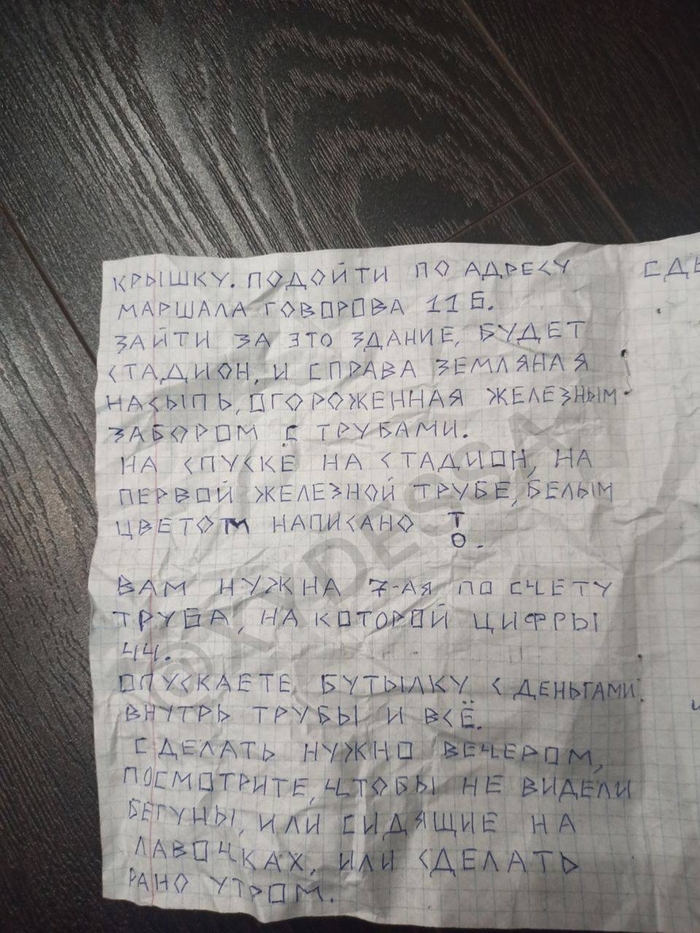 КРЫШКУ. ПОДОЙТИ ПО АДРЕСУ
МАРШАЛА ГОВОРОВА 11 Б.
ЗАЙТИ ЗА ЭТО ЗДАНИЕ, БУДЕТ
СТАДИОН, И СПРАВА ЗЕМЛЯНАЯ
НАСЫПЬ, ОГОРОЖЕННАЯ ЖЕЛЕЗНЫМ
ЗАБОРОМ С ТРУБАМИ.
НА СПУСКЕ НА СТАДИОН, НА
ПЕРВОЙ ЖЕЛЕЗНОЙ ТРУБЕ, БЕЛЫМ
ЦВЕТОМ НАПИСАНО Т
О.
ВАМ НУЖНА 7-АЯ ПО СЧЕТУ
ТРУБА, НА КОТОРОЙ ЦИФРЫ
44.
ОПУСКАЕТЕ БУТЫЛКУ С ДЕНЬГАМИ
ВНУТРЬ ТРУБЫ И ВСЁ.
СДЕЛАТЬ НУЖНО ВЕЧЕРОМ,
ПОСМОТРИТЕ, ЧТОБЫ НЕ ВИДЕЛИ
БЕГУНЫ, ИЛИ СИДЯЩИЕ НА
ЛАВОЧКАХ, ИЛИ СДЕЛАТЬ
РАНО УТРОМ.
@XYDESSA